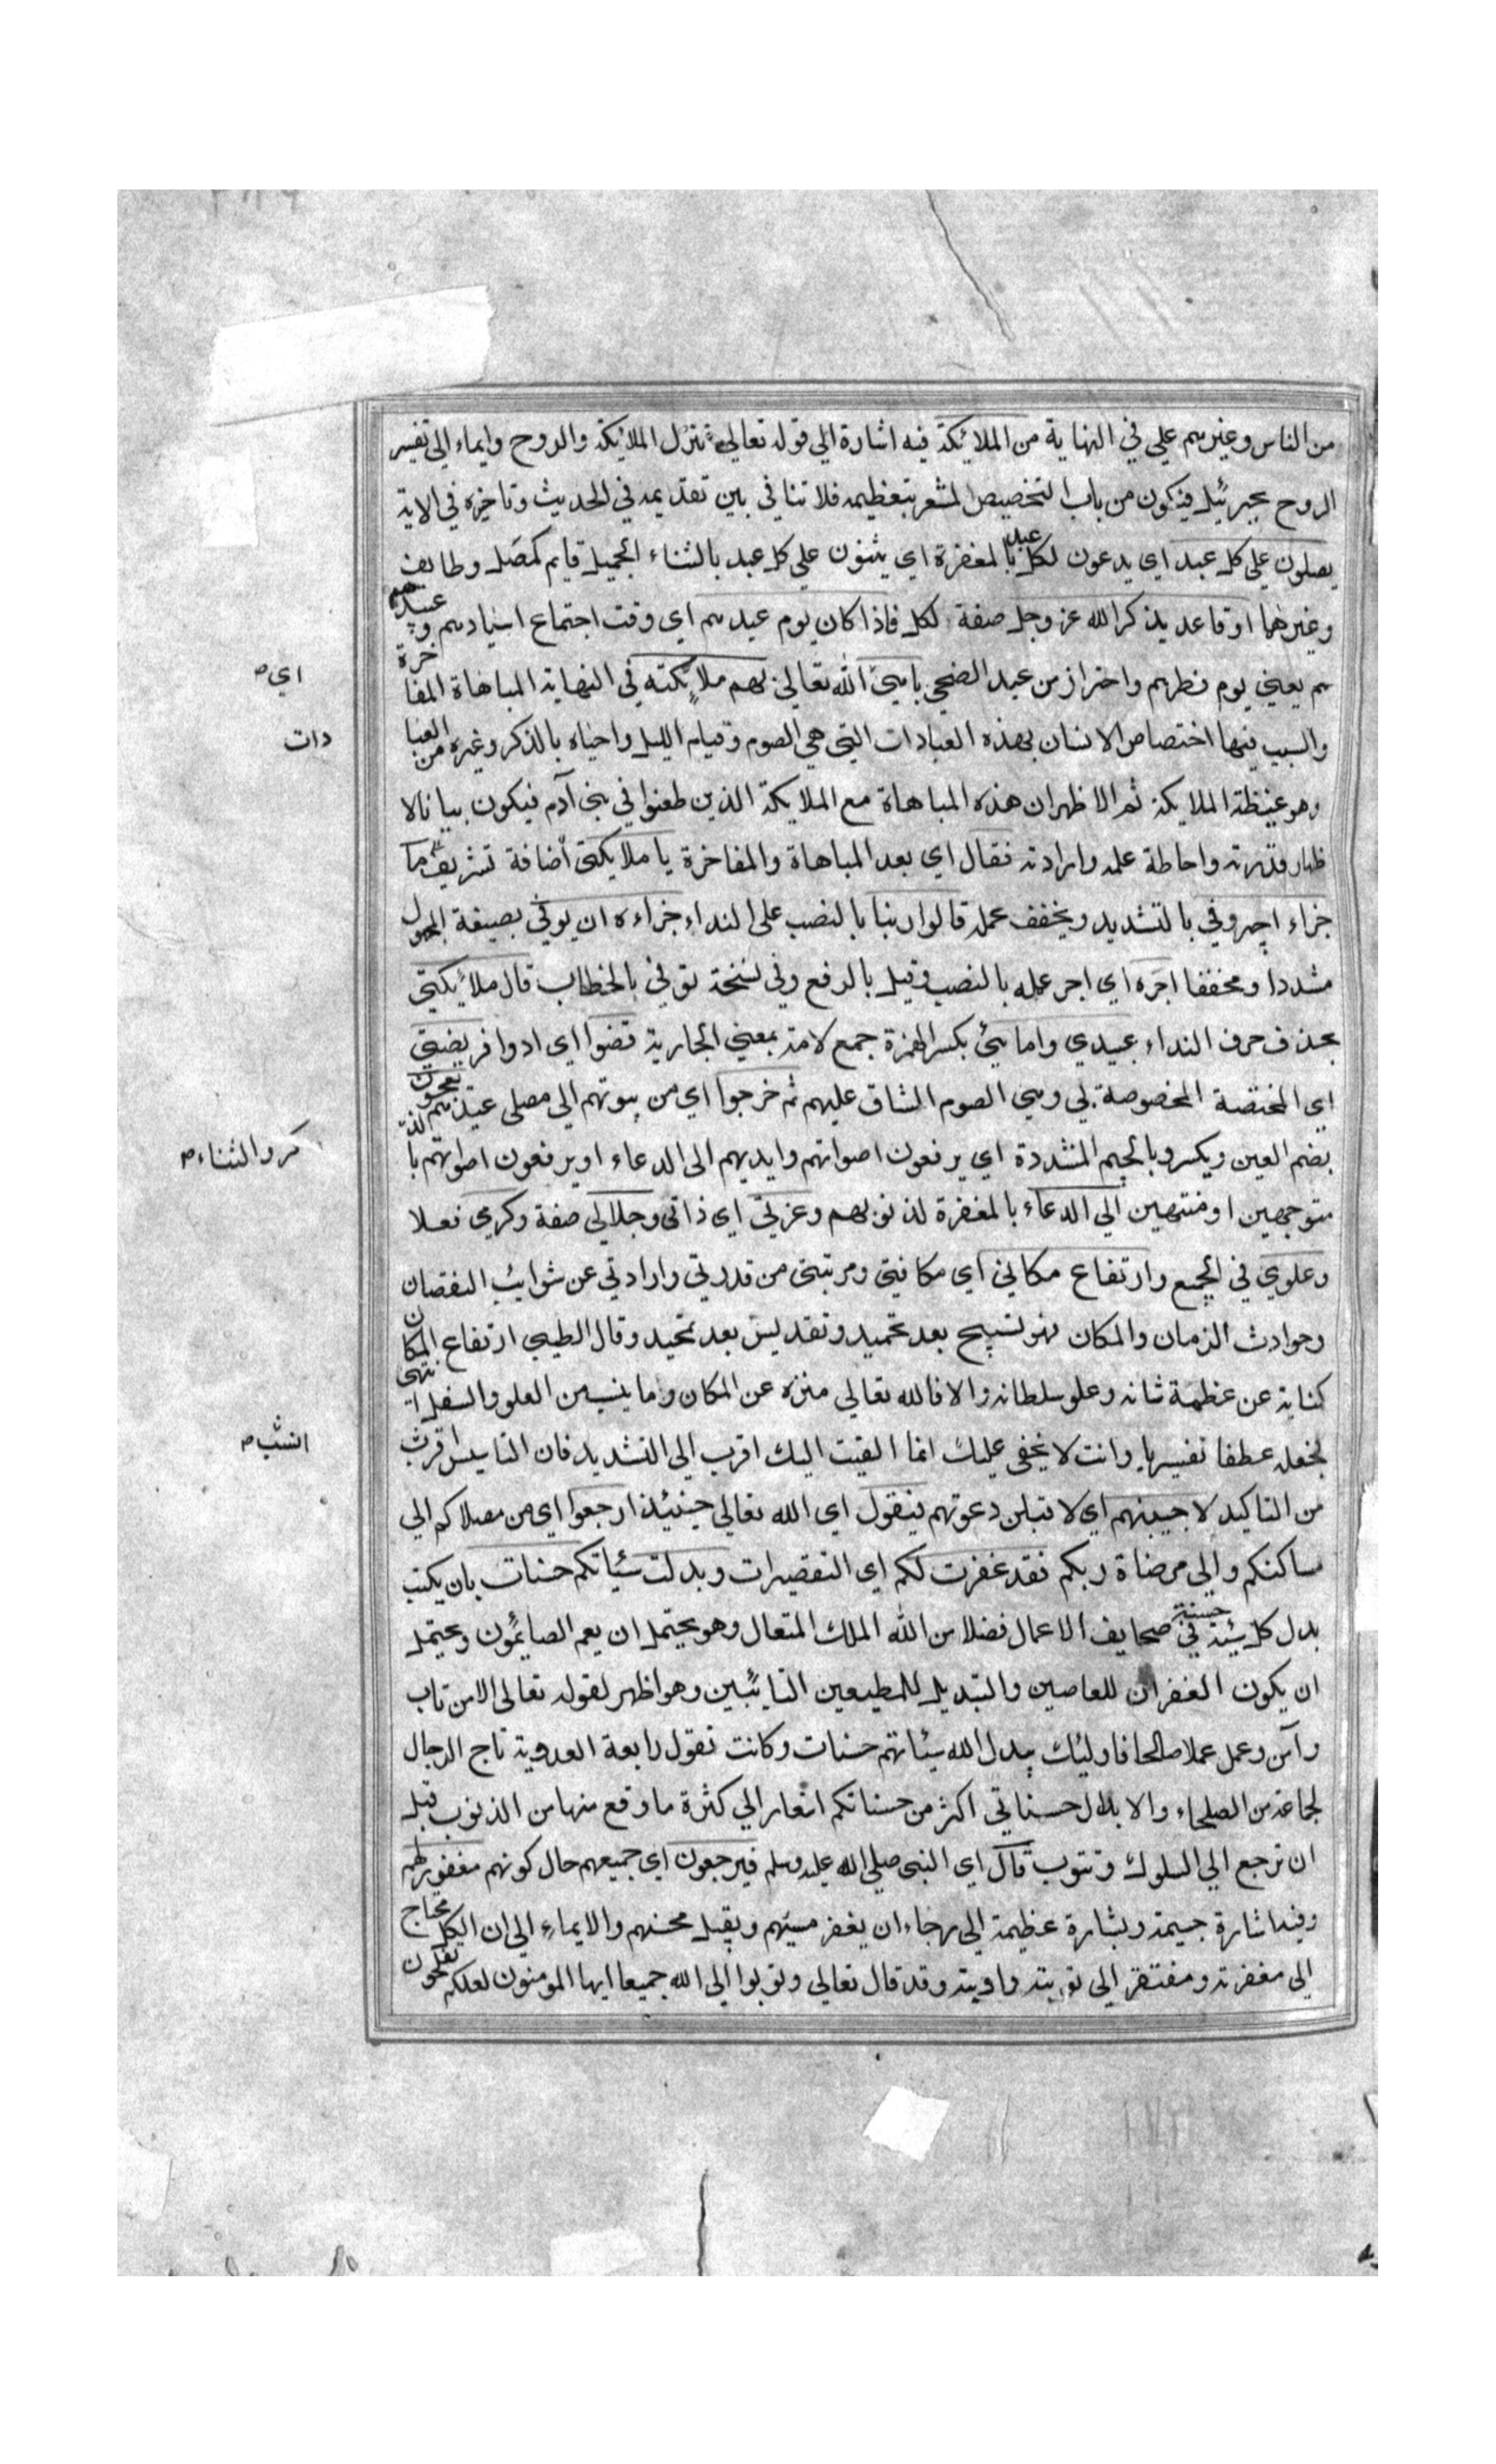 من الناس وغيرهم علي في النهاية من الملائكة فيه اشارة الي قوله تعالي تنزل الملائكة والروح وايماء الي تفسير
الروح بجبرئيل فيكون من باب التخصيص المشعر بتعظيمه فلا تنافي بين تقديمه في الحديث وتاخيره في الاية
يصلون علي كل عبد اي يدعون لكل عبد بالمغفرة اي يثنون علي كل عبد بالثناء الجميل قايم كمصل وطائف
وغيرهما او قاعد يذكر الله عز وجل صفة لكل فاذا كان يوم عيدهم اي وقت اجتماع اسيادهم وعبيدهم
اي
هم يعني يوم فطرهم واحتراز من عيد الضحي باهي الله تعالي بهم ملائكته في النهاية المباهاة المفاخرة
والسبب فيها اختصاص الانسان بهذه العبادات التي هي الصوم وقيام الليل واحياه بالذكر وغيره من العبا
دات
وهو غبطة الملايكة ثم الاظهر ان هذه المباهاة مع الملايكة الذين طعنوا في بني آدم فيكون بيانا لا
ظهار قدرته واحاطة علمه وارادته فقال اي بعد المباهاة والمفاخرة يا ملايكتي اضافة تشريف ما
جزاء اجير وفي بالتشديد ويخفف عمله قالوا ربنا بالنصب علي النداء جزاءه ان يوفي بصيغة المجهول
مشددا ومخففا اجره اي اجر عمله بالنصب وقيل بالرفع وفي نسخة توفي بالخطاب قال ملائكتي
بحذف حرف النداء عبيدي وامائي بكسر الهمزة جمع لامة بمعني الجارية قضوا اي ادوا فريضتي
اي المختصة المخصوصة لي وهي الصوم الشاق عليهم ثم خرجوا اي من بيوتهم الي مصلي عيدهم يعجون
بضم العين ويكسر وبالجيم المشددة اي يرفعون اصواتهم وايديهم الي الدعاء او يرفعون اصواتهم بالذ
كر والثناء
متوجهين او منتهين الي الدعاء بالمغفرة لذنوبهم وعزتي اي ذاتي وجلالي صفة وكرمي فعلا
وعلوي في الجميع وارتفاع مكاني اي مكانتي ومرتبتي من قدرتي وارادتي عن شوايب النقصان
وحوادث الزمان والمكان فهو تسبيح بعد تحميد وتقديس بعد تمجيد وقال الطيبي ارتفاع المكان
كناية عن عظمة شانه وعلو سلطانه والا فالله تعالي منزه عن المكان وما ينسب من العلو والسفل انتهي
فجعله عطفا تفسيريا وانت لا يخفي عليك انما القيت اليك اقرب الي التشديد فان التاسيس اقرب
انسب
من التاكيد لاجيبنهم اي لاقبلن دعوتهم فيقول اي الله تعالي حينئذ ارجعوا اي من مصلاكم الي
مساكنكم والي مرضاة ربكم فقد غفرت لكم اي التقصيرات وبدلت سيئاتكم حسنات بان يكتب
بدل كل سيئة حسنة في صحايف الاعمال فضلا من الله الملك المتعال وهو يحتمل ان يعم الصائمون ويحتمل
ان يكون الغفران للعاصين والتبديل للمطيعين التائبين وهو اظهر لقوله تعالي الا من تاب
وآمن وعمل عملا صالحا فاوليك يبدل الله سيئاتهم حسنات وكانت تقول رابعة العدوية تاج الرجال
لجماعة من الصلحاء والابدال حسناتي اكثر من حسناتكم اشعار الي كثرة ما وقع منها من الذنوب قبل
ان ترجع الي السلوك وتتوب قال اي النبي صلي الله عليه وسلم فيرجعون اي جميعهم حال كونهم مغفورا لهم
وفيه اشارة جسيمة وبشارة عظيمة الي رجاء ان يغفر مسيئهم ويقبل محسنهم والايماء الي ان الكل محتاج
الي مغفرته ومفتقر الي توبته واوبته وقد قال تعالي وتوبوا الي الله جميعا ايها المومنون لعلكم تفلحون